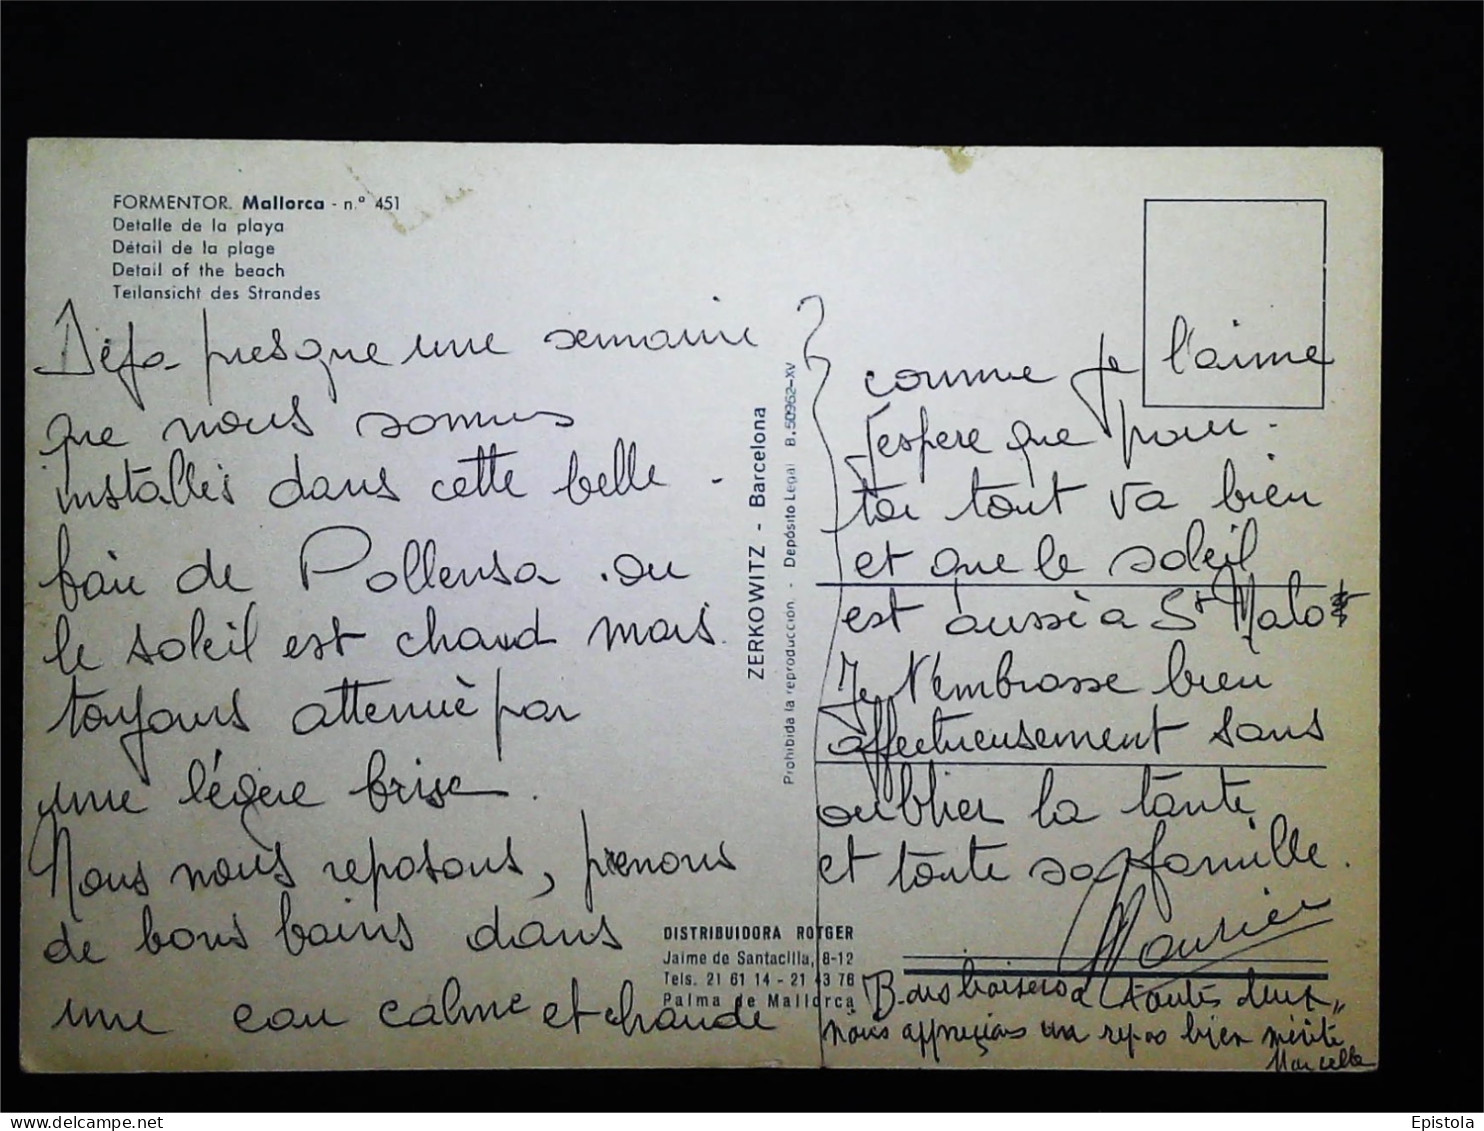 FORMENTOR. Mallorca - n.º 451
Detalle de la playa
Détail de la plage
Detail of the beach
Teilansicht des Strandes
Déja presque une semaine
que nous sommes
installés dans cette belle
baie de Pollensa. ou
le soleil est chaud mais
toujours attenué par
une légère brise.
Nous nous reposons, prenons
de bons bains dans
une eau calme et chaude
ZERKOWITZ - Barcelona
Prohibida la reproducción. - Depósito Legal B. 50962-XV
comme je l'aime
J'espere que pour
toi tout va bien
et que le soleil
est aussi a St Malo
Je t'embrasse bien
affectueusement sans
oublier la tante
et toute sa famille.
Maurice
DISTRIBUIDORA ROTGER
Jaime de Santacilia, 8-12
Tels. 21 61 14 - 21 43 76
Palma de Mallorca
Bons baisers a toutes deux
nous apprecions un repos bien mérité
Marcelle
Epistola